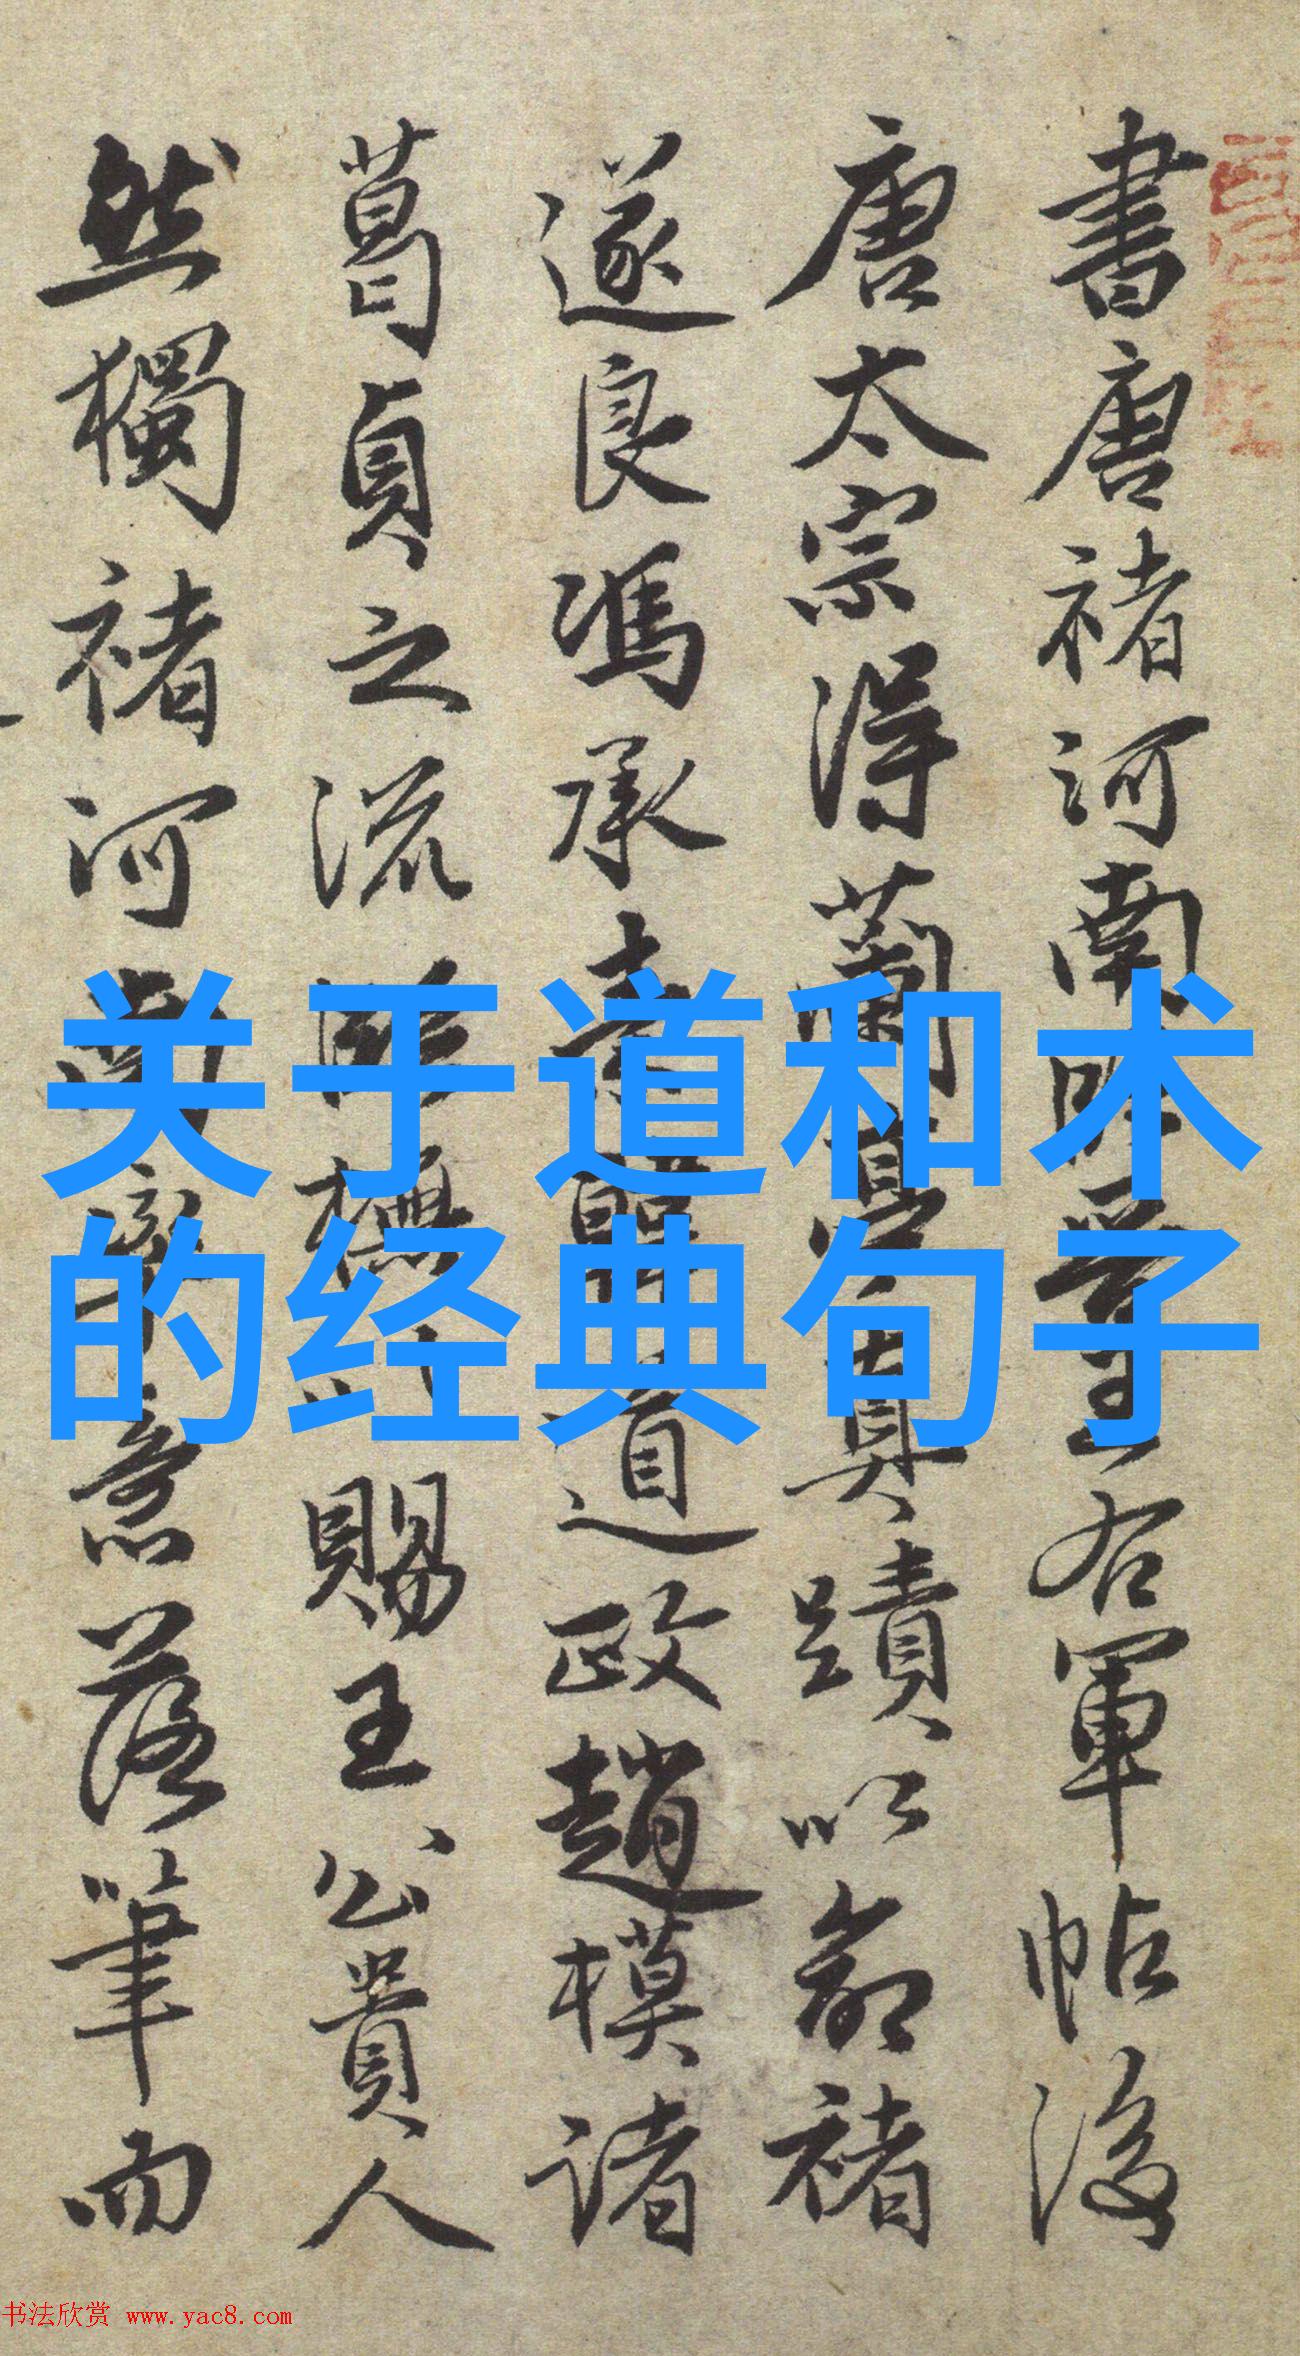 書唐褚河南臨晉王右軍帖後
唐太宗得蘭真蹟以命褚
遂良馮承素韓道政趙模諸
葛貞之流臨橅以賜王公貴人
然獨褚河意落筆而
关于道和术
的经典句子
书法欣赏 www.yac8.com